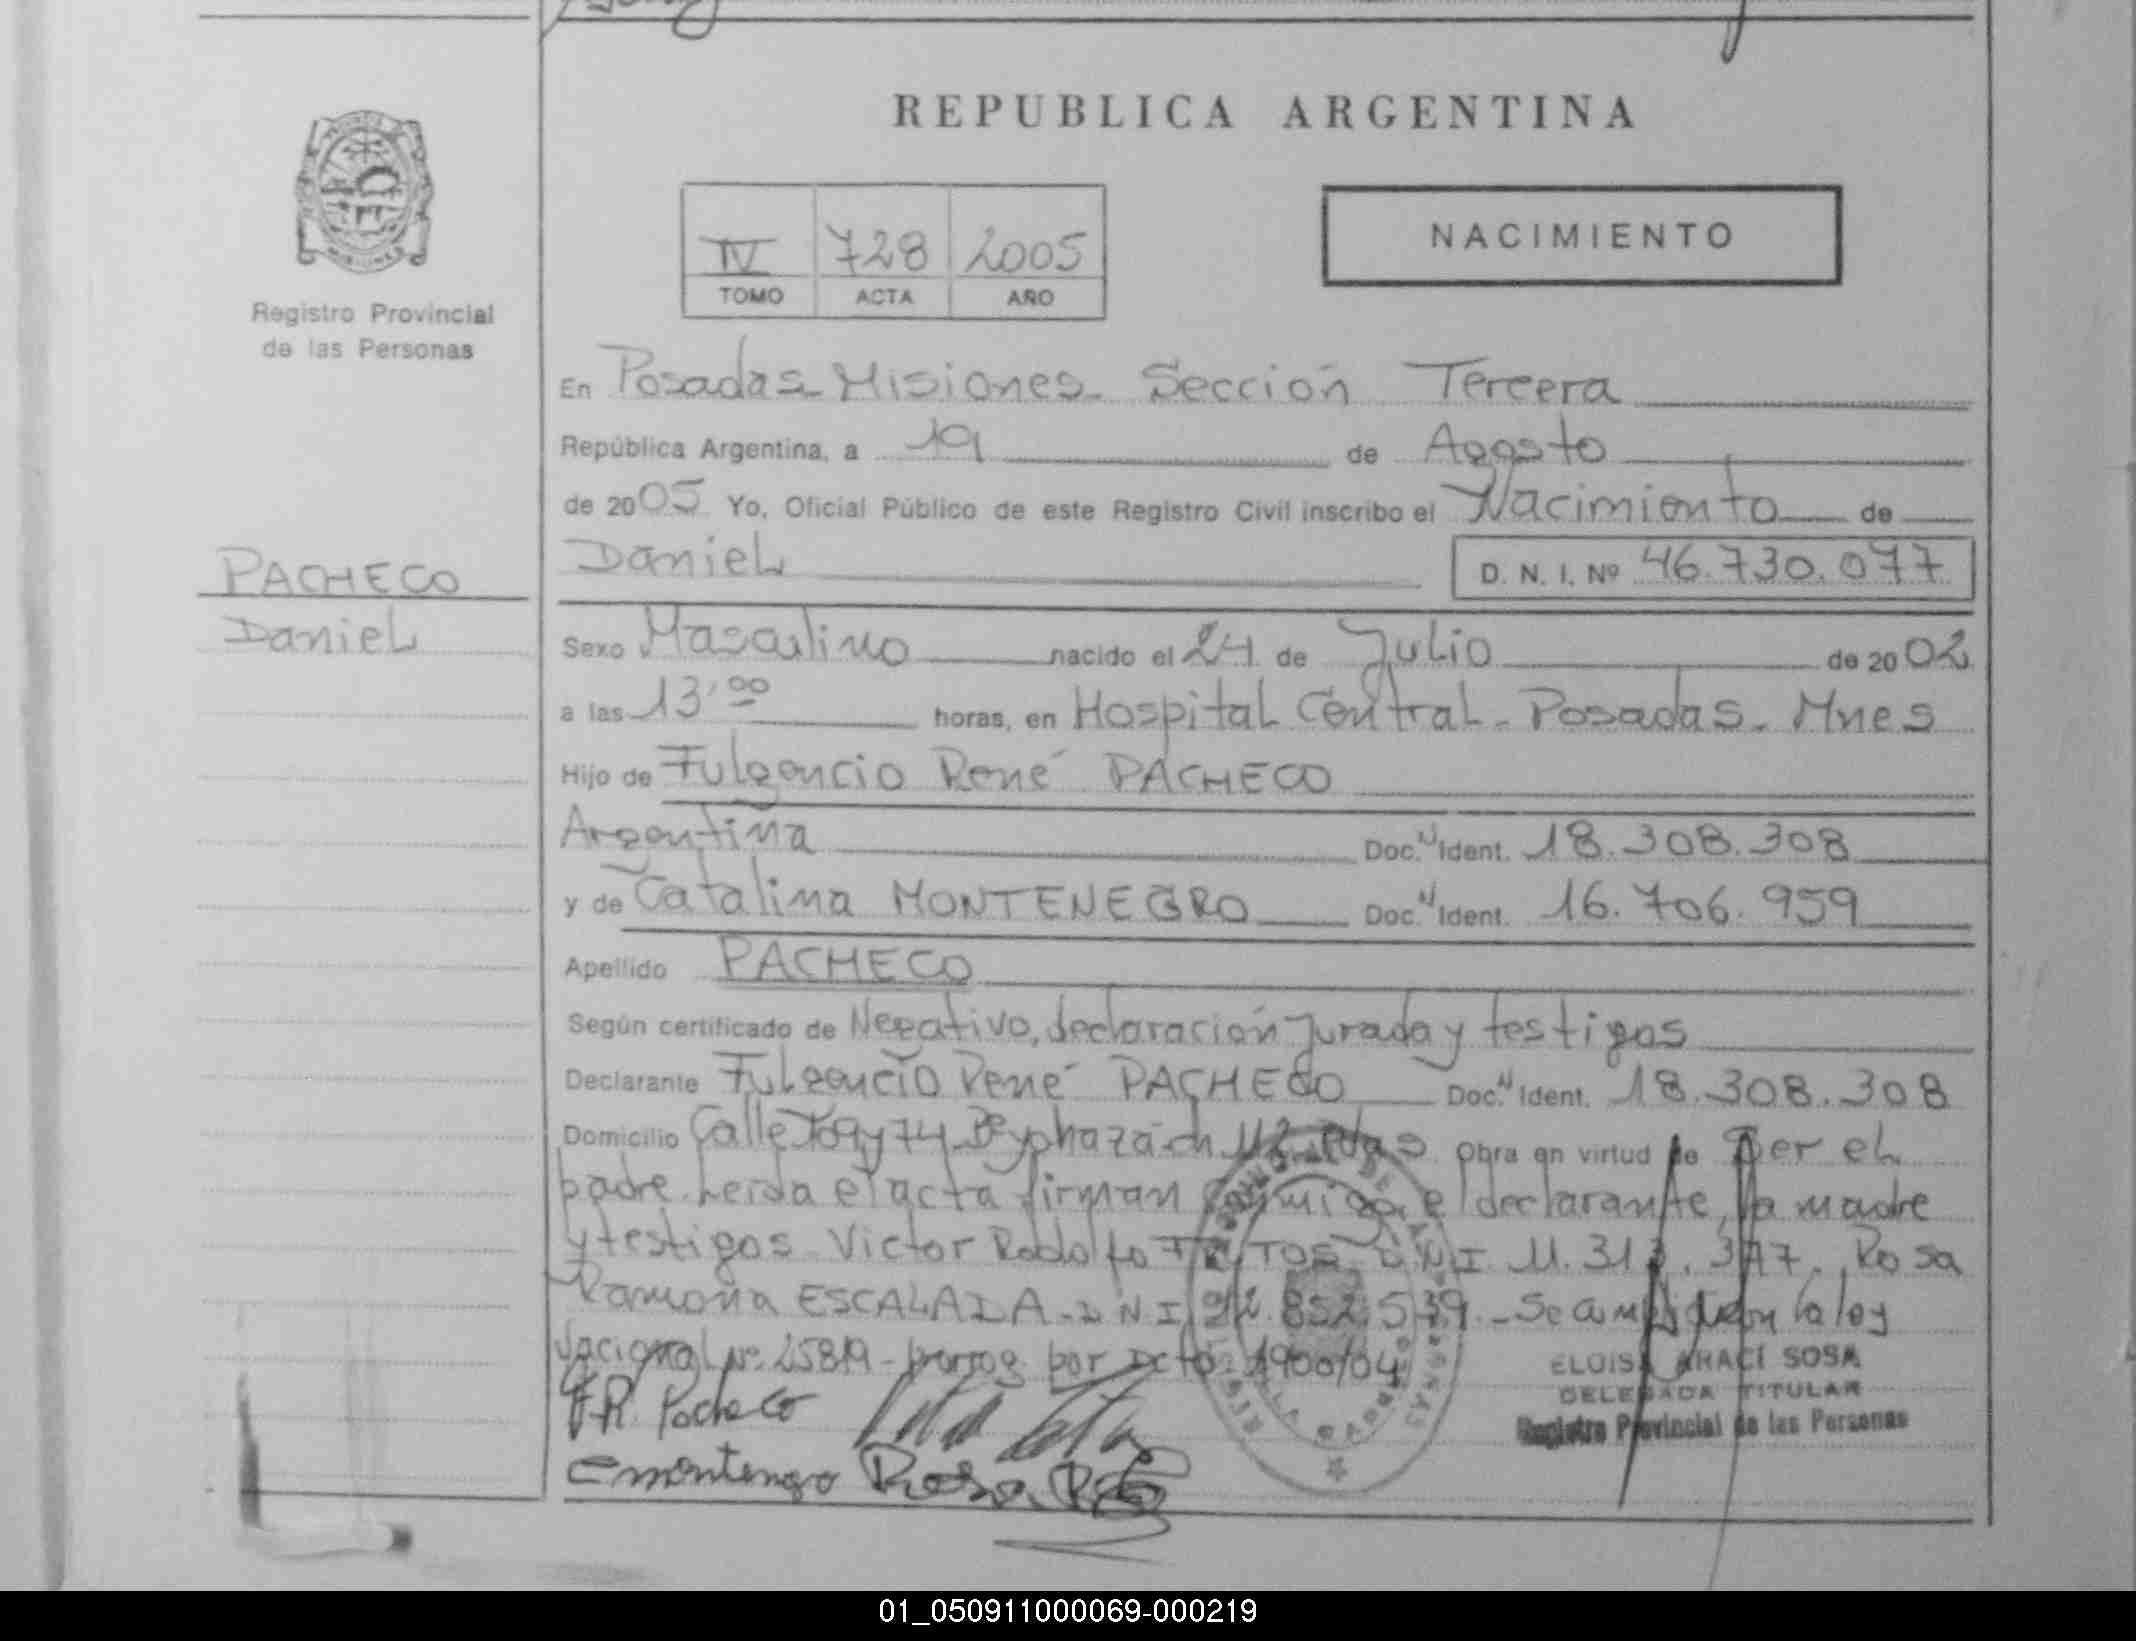 REPUBLICA ARGENTINA
IV 728 2005
TOMO ACTA AÑO
NACIMIENTO
Registro Provincial
de las Personas
En Posadas Misiones. Sección Tercera
República Argentina, a 19 de Agosto
de 2005 Yo, Oficial Público de este Registro Civil inscribo el Nacimiento de
PACHECO
Daniel
Daniel D. N. I. Nº 46.730.077
Sexo Masculino nacido el 24 de Julio de 2002
a las 13,00 horas, en Hospital Central - Posadas - Mnes
Hijo de Fulgencio René PACHECO
Argentina Doc. N Ident. 18.308.308
y de Catalina MONTENEGRO Doc. N Ident. 16.706.959
Apellido PACHECO
Según certificado de Negativo, declaración Jurada y testigos
Declarante Fulgencio René PACHECO Doc. N Ident. 18.308.308
Domicilio Calle 74 Obra en virtud de ser el
padre. Leida el acta firman conmigo el declarante, la madre
y testigos Victor Rodolfo D.N.I. Rosa
Ramona ESCALADA - D N I 852.539. - Se la ley
Nacional Nº 25819 - prorrog. por Dcto. 1900/04
F.R. Pacheco
ELOISA ARACI SOSA
DELEGADA TITULAR
Registro Provincial de las Personas
C montenego Rosa
01_050911000069-000219